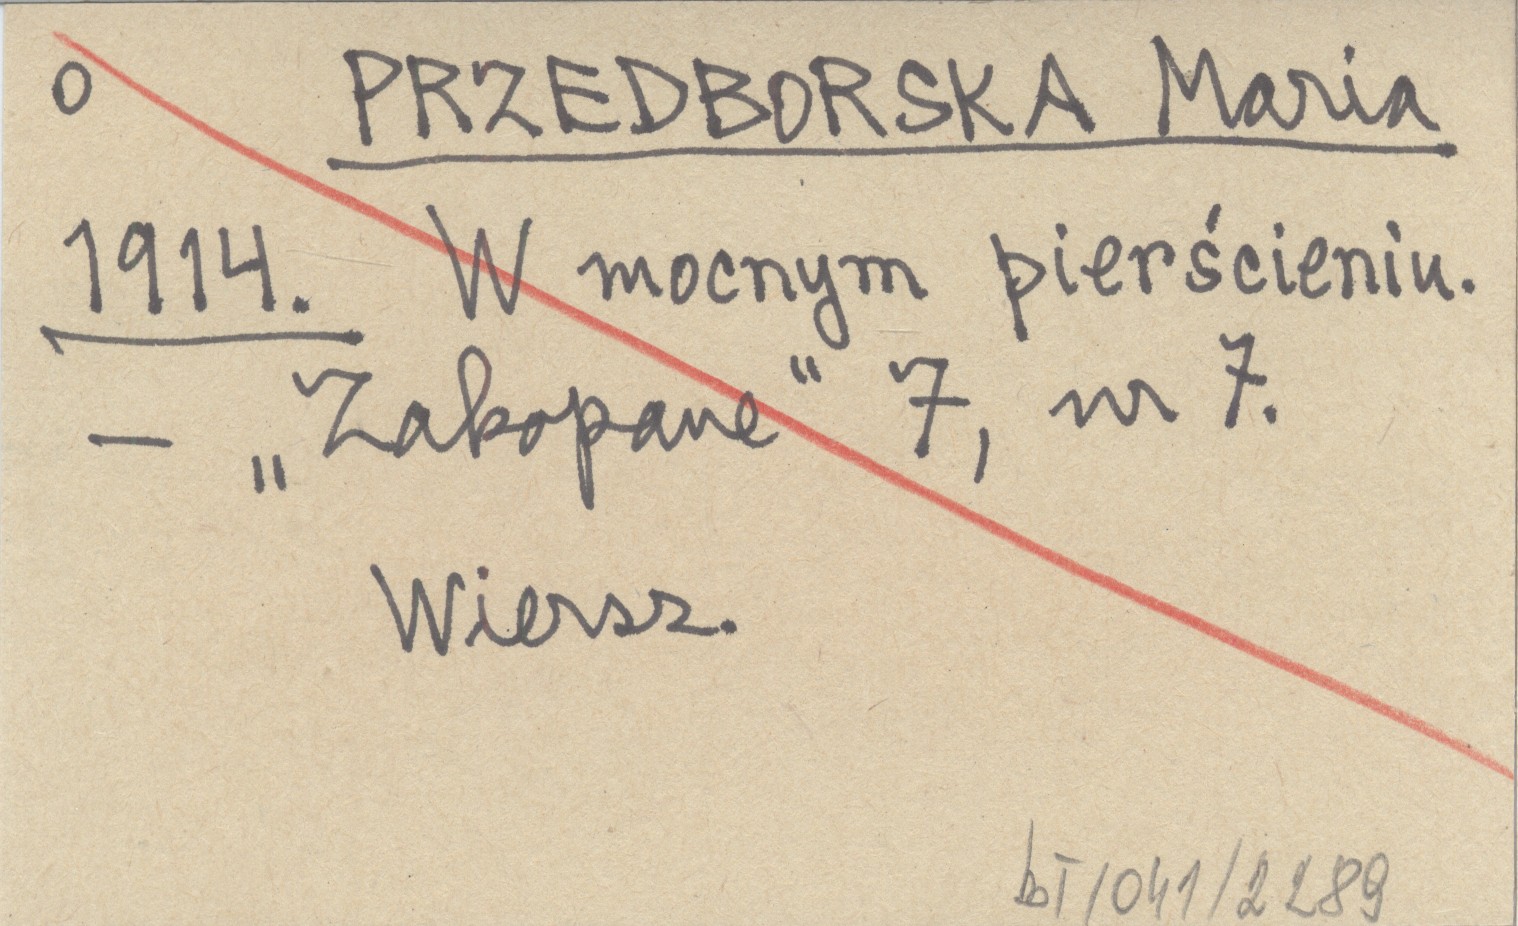 o PRZEDBORSKA Maria
1914. W mocnym pierścieniu.
— „Zakopane" 7, nr 7.
Wiersz.
bT/041/2289